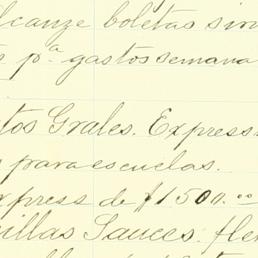 lcanze boletas sin
s pª gastos semana
tos Grales. Express
s para escuelas.
xpress de $1500.00
illas Sauces. fle